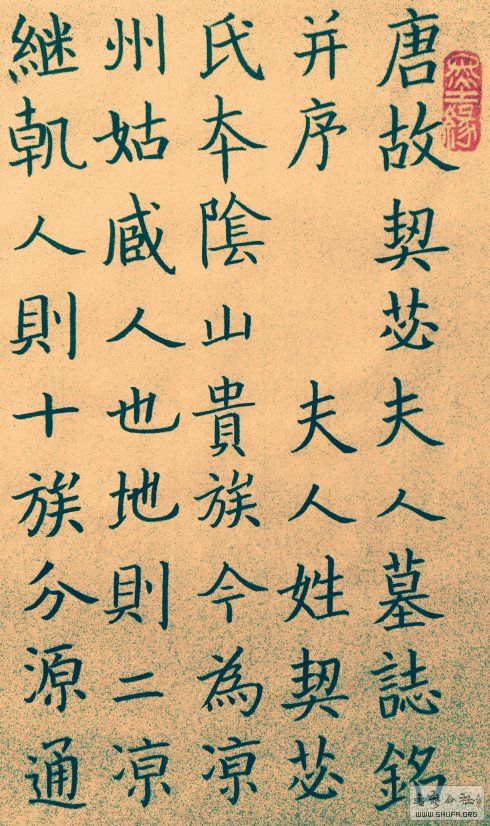 唐故契苾夫人墓誌銘
并序　夫人姓契苾
氏夲陰山貴族今為凉
州姑臧人也地則二凉
継軌人則十族分源通
WWW.SHUFA.ORG